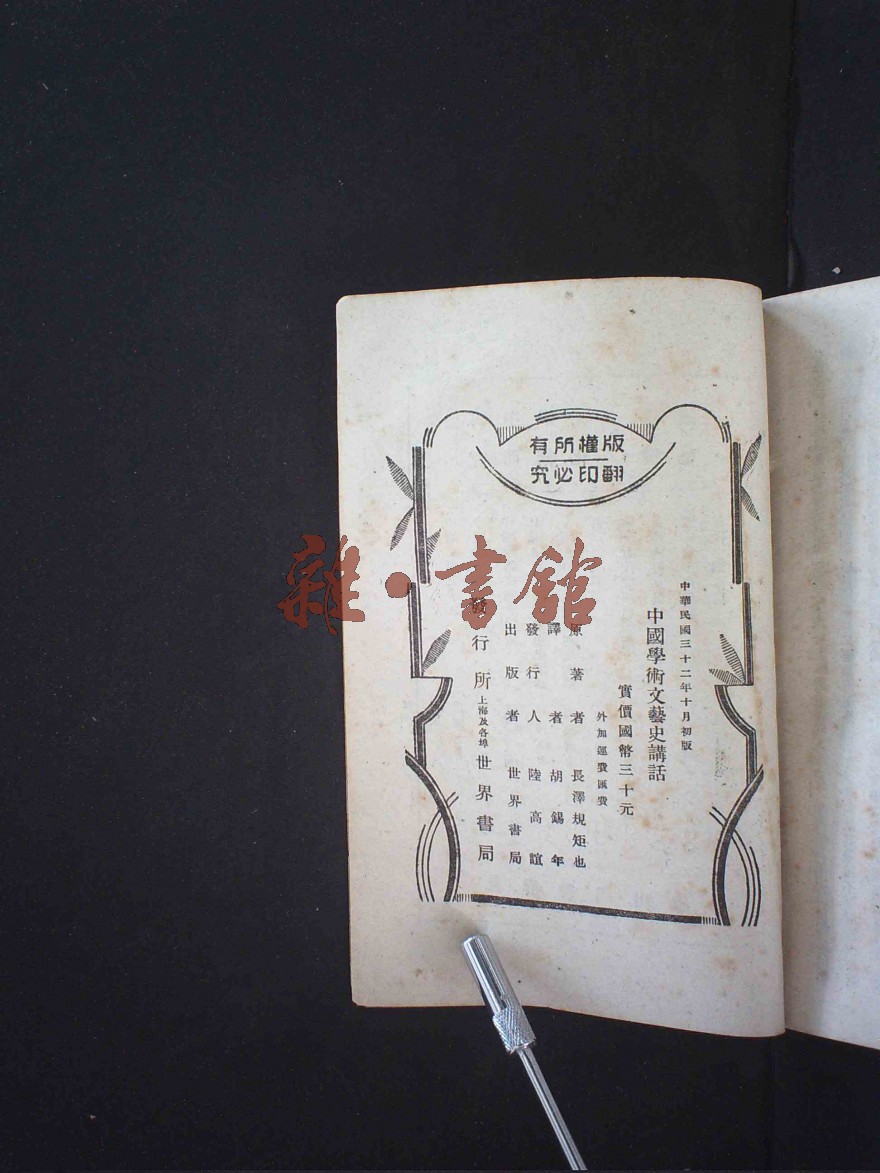 版權所有
翻印必究
中華民國三十二年十月初版
中國學術文藝史講話
實價國幣三十元
外加運費匯費
原著者 長澤規矩也
譯者 胡錫年
發行人 陸高誼
出版者 世界書局
發行所 上海及各埠 世界書局
雜·書館